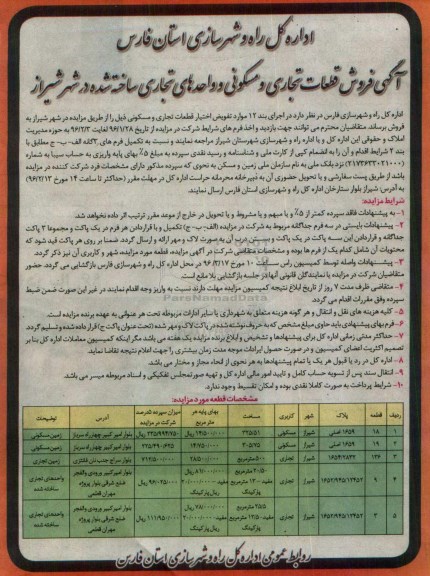 اداره کل راه و شهرسازی استان فارس
آگهی فروش قطعات تجاری و مسکونی و واحدهای تجاری ساخته شده در شهر شیراز
اداره کل راه و شهرسازی فارس در نظر دارد در اجرای بند ۱۲ موارد تفویض اختیار قطعات تجاری و مسکونی ذیل را از طریق مزایده در شهر شیراز به
فروش برساند. متقاضیان محترم می توانند جهت بازدید و اخذ فرم های شرایط شرکت در مزایده از تاریخ ۹۶/۱/۲۸ لغایت ۹۶/۲/۲ به حوزه مدیریت
املاک و حقوقی این اداره کل و یا اداره راه و شهرسازی شهرستان شیراز مراجعه نمایند و نسبت به تکمیل فرم های ۳گانه الف- ب- ج مطابق با
بند ۲ شرایط اقدام و آن را به انضمام کپی از کارت ملی و شناسنامه و رسید نقدی سپرده به مبلغ ۵٪ بهای پایه واریزی به حساب سیبا به شماره
نزد بانک ملی به نام سازمان ملی زمین و مسکن به نحوی که سپرده مذکور دارای مشخصات فرد شرکت کننده در مزایده
باشد از طریق پست سفارشی و یا تحویل حضوری آن به دبیرخانه محرمانه حراست اداره کل در مهلت مقرر (حداکثر تا ساعت ۱۴ مورخ ۹۶/۲/۱۳)
به آدرس شیراز بلوار ستارخان اداره کل راه و شهرسازی فارس ارسال نمایند.
شرایط مزایده:
۱- به پیشنهادات فاقد سپرده کمتر از ۵٪ و یا مبهم و یا مشروط و یا تحویل در خارج از موعد مقرر ترتیب اثر داده نخواهد شد.
۲- پیشنهادات بایستی در سه فرم جداگانه مربوط به شرکت در مزایده (الف-ب-ج) تکمیل و با قراردادن هر فرم در یک پاکت و مجموعا ۳ پاکت
جداگانه و قراردادن این سه پاکت در یک پاکت و بستن درب آن به صورت لاک و مهر ارائه و ارسال گردد. ضمنا بر روی هر پاکت قید شود که
محتویات آن شامل کدام یک از فرم ها بوده و مشخصات متقاضی شرکت در آگهی مزایده، قطعه مورد مزایده، شهر و کاربری آن نیز ذکر گردد.
۳- پیشنهادات واصله توسط کمیسیون راس ساعت ۱۰ مورخ ۹۶/۲/۱۷ در محل اداره کل راه و شهرسازی فارس بازگشایی می گردد. حضور
متقاضیان شرکت در مزایده یا نمایندگان قانونی آنها در جلسه بازگشایی بلا مانع است.
۴- متقاضی ظرف مدت ۷ روز از تاریخ ابلاغ نتیجه کمیسیون مزایده مهلت دارند نسبت به واریز وجه اقدام نمایند در غیر این صورت ضمن ضبط
سپرده وفق مقررات اقدام می گردد.
۵- کلیه هزینه های نقل و انتقال و هر گونه هزینه متعلق به شهرداری یا سایر ادارات مربوطه تحت هر عنوانی به عهده برنده مزایده است.
۶- فرم بهای پیشنهادی باید حاوی مبلغ مشخص که به حروف نوشته شده در پاکت لاک و مهر شده (تحت عنوان پاکت ج) قرار داده شده و تسلیم گردد.
۷- حداکثر مدتی زمانی اداره کل برای پیشنهادها و تشخیص و ابلاغ برنده مزایده یک هفته می باشد مگر اینکه کمیسیون معاملات اداره کل بنا بر
تصمیم اکثریت اعضای کمیسیون و در صورت حصول ایرادات موجه مدت زمان بیشتری را جهت اعلام نتیجه تقاضا نماید.
۸- اداره کل در رد یا قبول هر یک یا تمام پیشنهادها به هر نحوی از انحاء مجاز و مختار می باشد.
۹- انتقال سند پس از تسویه حساب کامل و تایید امور مالی اداره کل و تهیه صورتمجلس تفکیکی و اسناد مربوطه میسر می باشد.
۱۰- شرایط پرداخت به صورت کاملا نقدی بوده و امکان تقسیط وجود ندارد.
ParsNamadData
مشخصات قطعه مورد مزایده:
ردیف قطعه پلاک شهر کاربری مساحت بهای پایه هر متر مربع میزان سپرده ۵درصد شرکت در مزایده آدرس توضیحات
۱ ۱۸ ۱۶۵۹ اصلی شیراز مسکونی بلوار امیر کبیر چهارراه سرباز زمین مسکونی
۲ ۱۹ ۱۶۵۹ اصلی شیراز مسکونی ۳۰۵/۷۵ بلوار امیر کبیر چهارراه سرباز زمین مسکونی
۳ شیراز تجاری ۵۰۰ مترمربع زمین تجاری
۴ ۹ شیراز تجاری بلوار امیر کبیر ورودی والفجر واحدهای تجاری ساخته شده
۵ ۳ شیراز تجاری بلوار امیر کبیر ورودی والفجر واحدهای تجاری ساخته شده
روابط عمومی اداره کل راه و شهرسازی استان فارس